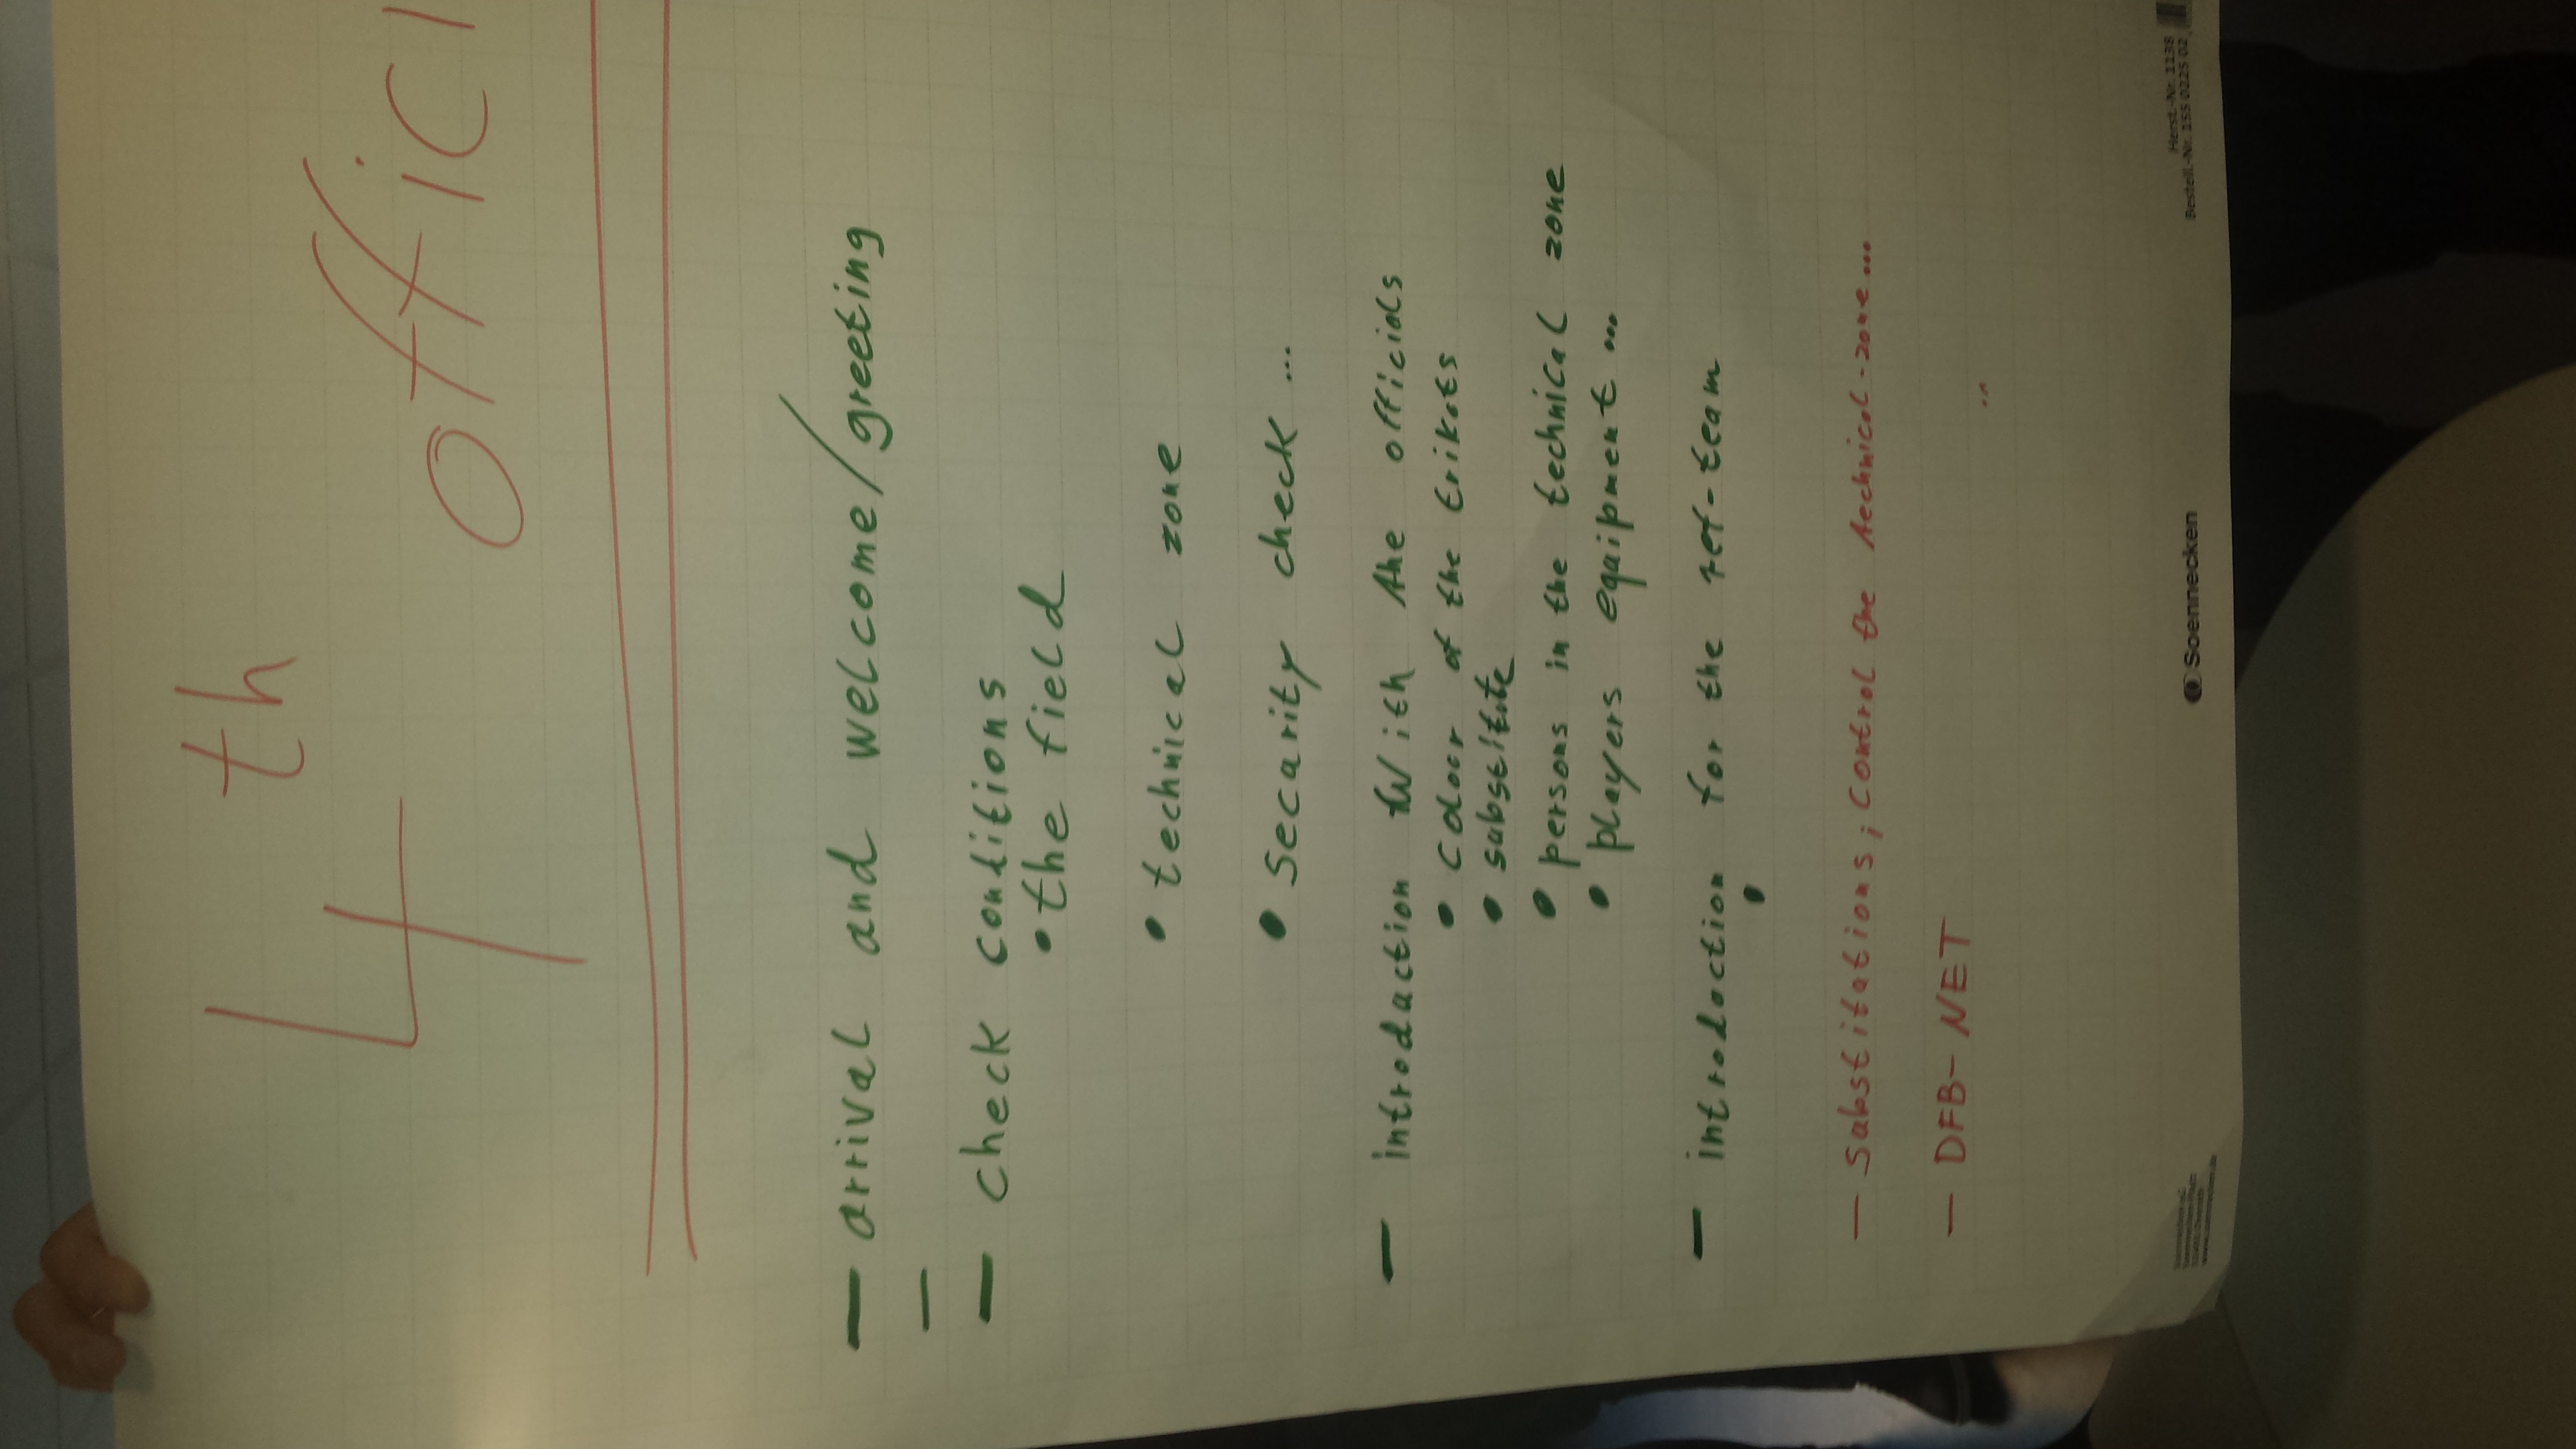 4th offici
— arrival and welcome/greeting
—
— check conditions
• the field
• technical zone
• Security check ...
— introduction With the officials
• color of the trikots
• substitute
• persons in the technical zone
• players equipment ...
— introduction for the ref-team
•
— Substitutions; control the technical-zone...
— DFB-NET ..
Soennecken
Herst.-Nr. 1138
Bestell.-Nr. 1515 0225 02